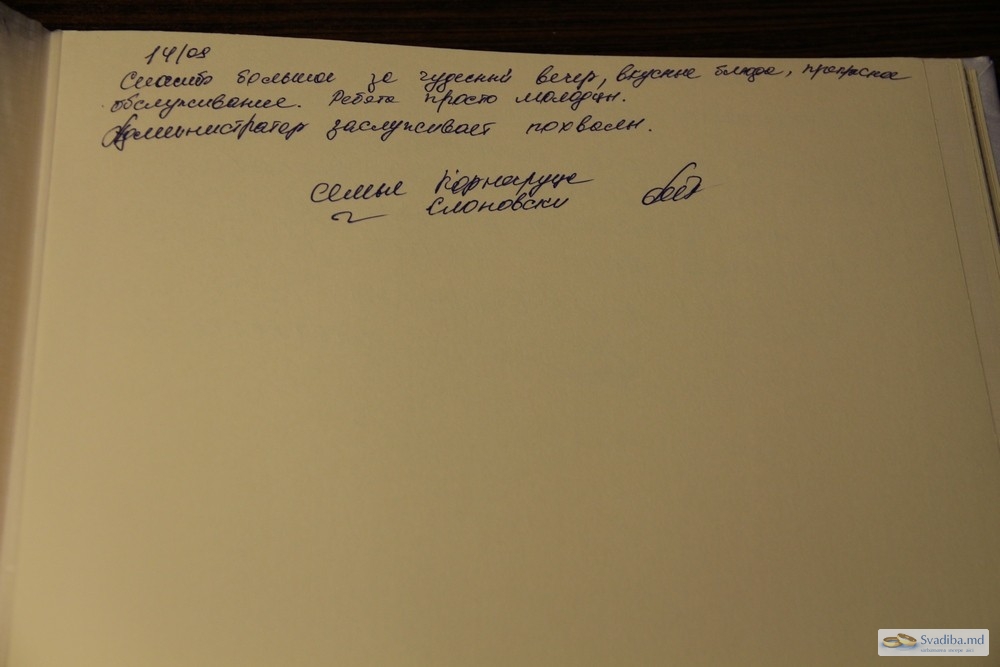 14/09
Спасибо большое за чудесный вечер, вкусные блюда, прекрасное
обслуживание. Ребята просто молодцы.
Администратор заслуживает похвалы.
семья Корнаруце
Слоновски
Svadiba.md